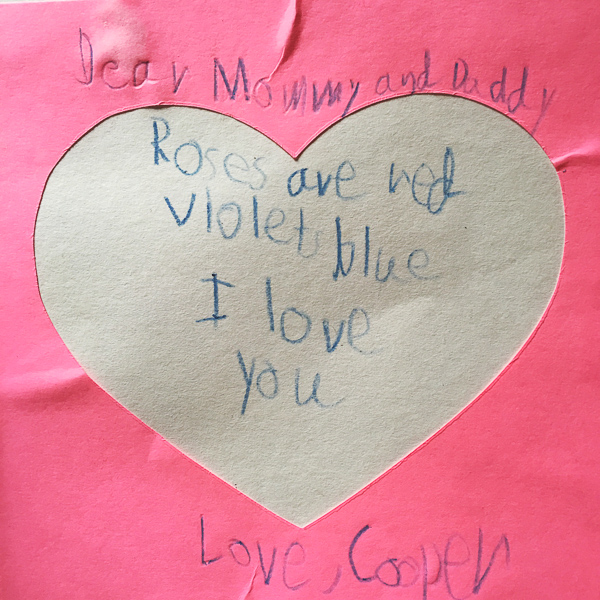 Dear Mommy and Daddy
Roses are red
violets blue
I love
you
Love, Cooper